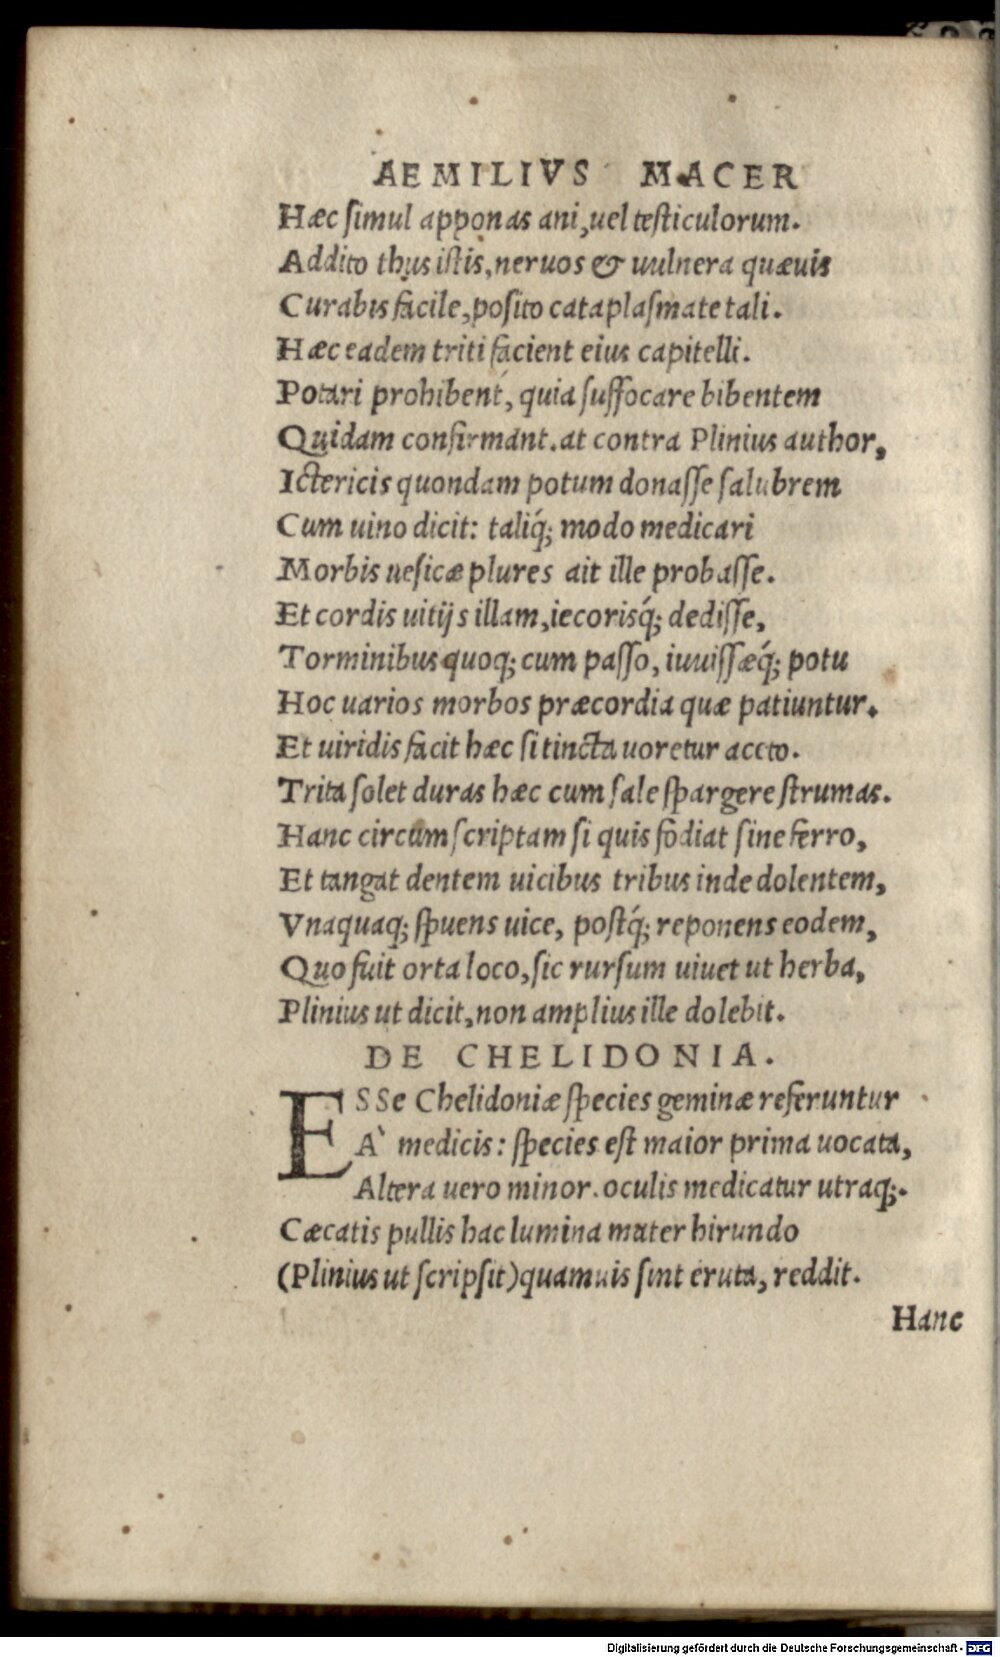 AEMILIVS MACER
Hæc ſimul apponas ani, uel teſticulorum.
Addito thus iſtis, neruos & uulnera quæuis
Curabis facile, poſito cataplaſmate tali.
Hæc eadem triti facient eius capitelli.
Potari prohibent, quia ſuffocare bibentem
Quidam confirmant. at contra Plinius author,
Ictericis quondam potum donaſſe ſalubrem
Cum uino dicit: taliq́; modo medicari
Morbis ueſicæ plures ait ille probaſſe.
Et cordis uitijs illam, iecorisq́; dediſſe,
Torminibus quoq; cum paſſo, iuuiſſæq́; potu
Hoc uarios morbos præcordia quæ patiuntur.
Et uiridis facit hæc ſi tincta uoretur aceto.
Trita ſolet duras hæc cum ſale ſpargere ſtrumas.
Hanc circum ſcriptam ſi quis fodiat ſine ferro,
Et tangat dentem uicibus tribus inde dolentem,
Vnaquaq; ſpuens uice, poſtq́; reponens eodem,
Quo fuit orta loco, ſic rurſum uiuet ut herba,
Plinius ut dicit, non amplius ille dolebit.
DE CHELIDONIA.
ESSe Chelidoniæ ſpecies geminæ referuntur
A` medicis: ſpecies eſt maior prima uocata,
Altera uero minor. oculis medicatur utraq;.
Cæcatis pullis hac lumina mater hirundo
(Plinius ut ſcripſit) quamuis ſint eruta, reddit.
Hanc
Digitalisierung gefördert durch die Deutsche Forschungsgemeinschaft - DFG